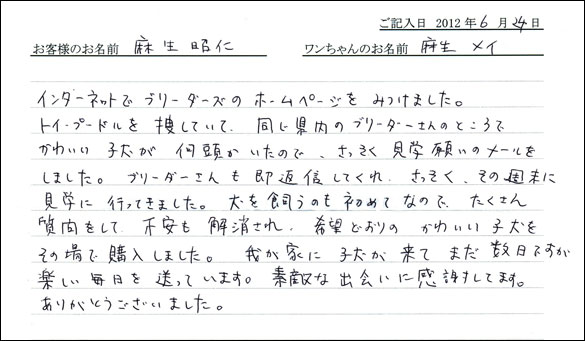 ご記入日 2012年6月24日
お客様のお名前 麻生昭仁 ワンちゃんのお名前 麻生 メイ
インターネットでブリーダーズのホームページをみつけました。
トイ・プードルを捜していて、同じ県内のブリーダーさんのところで
かわいい子犬が何頭かいたので、さっそく見学願いのメールを
しました。ブリーダーさんも即返信してくれ、さっそく、その週末に
見学に行ってきました。犬を飼うのも初めてなので、たくさん
質問をして、不安も解消され、希望どおりのかわいい子犬を
その場で購入しました。我が家に子犬が来てまだ数日ですが
楽しい毎日を送っています。素敵な出会いに感謝してます。
ありがとうございました。